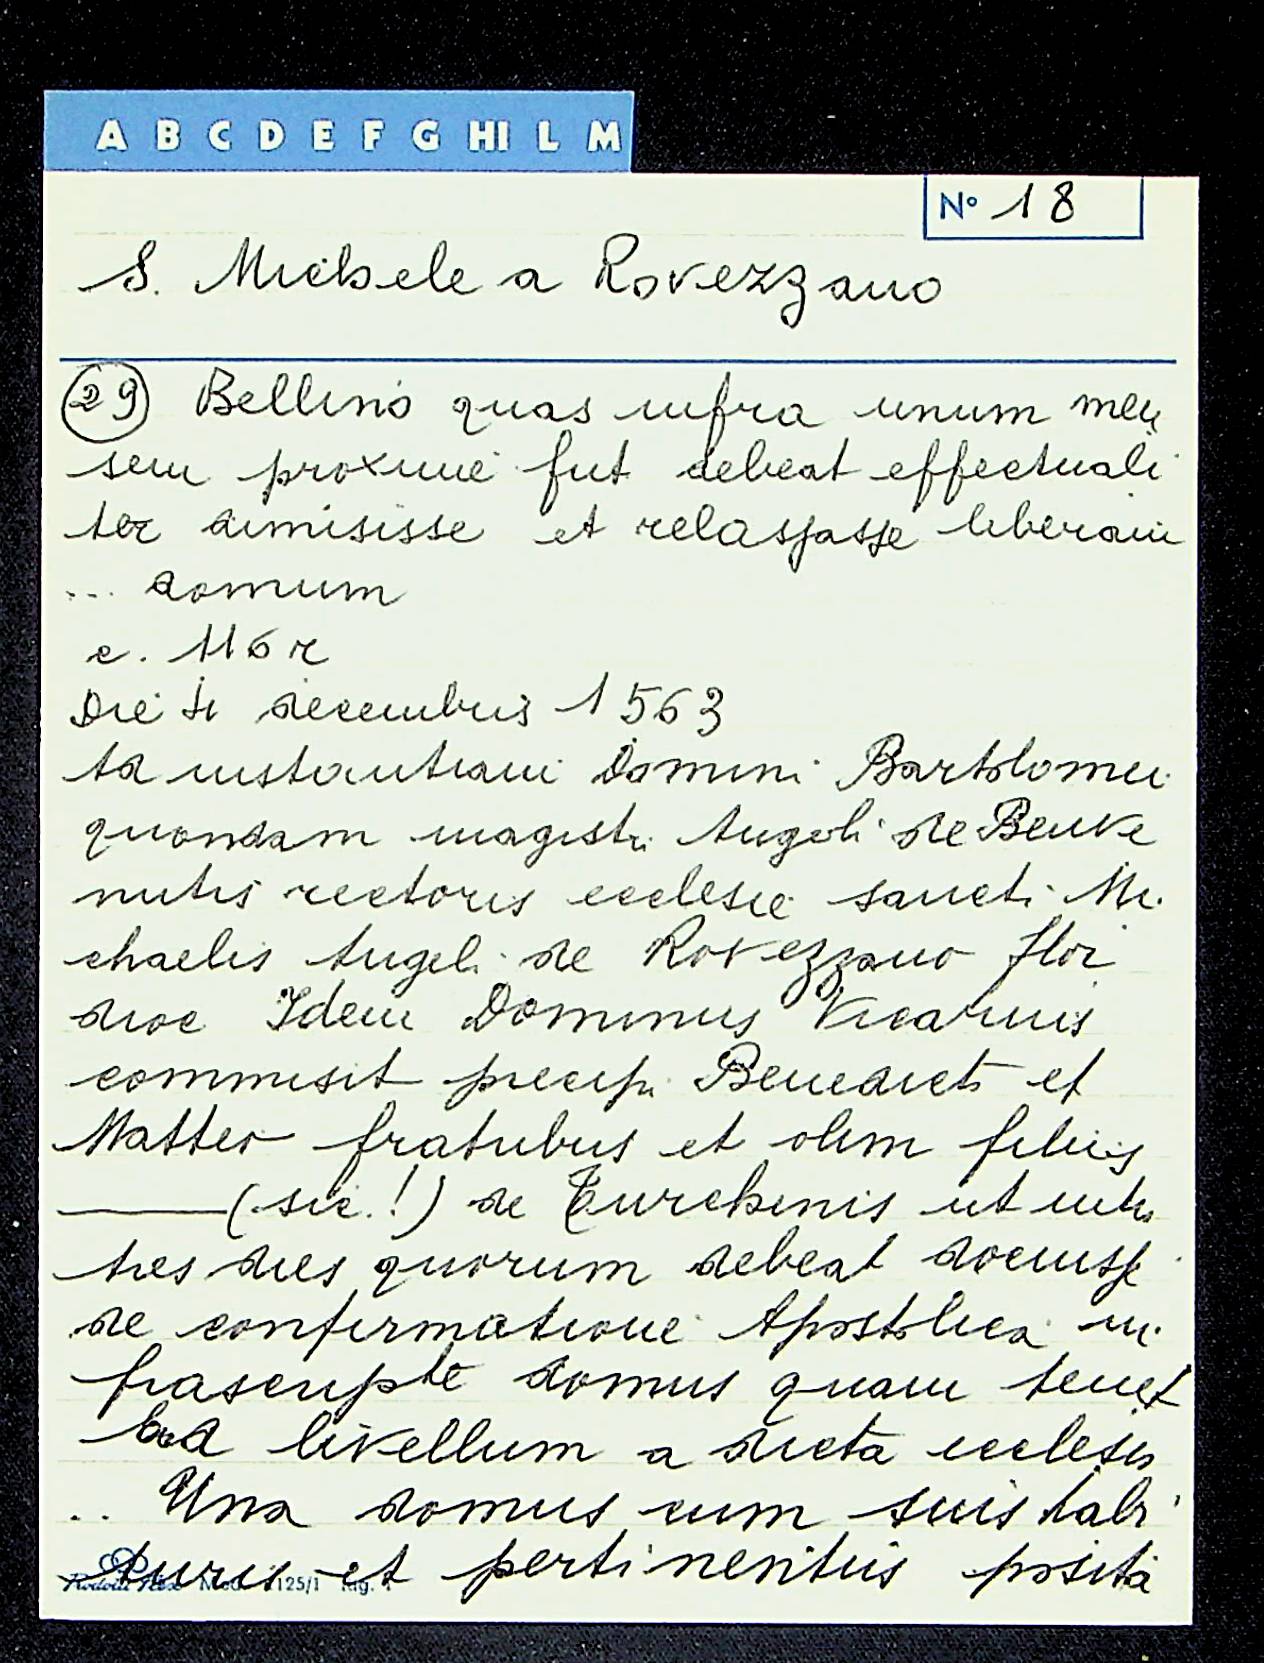 A B C D E F G HI L M
N° 18
S. Michele a Rovezzano
29 Bellino quas infra unum men
sem proxime fut debeat effectuali
ter dimisisse et relassasse liberam
... domum
c. 116 r
Die 4 decembris 1563
Ad instantiam Domini Bartolomei
quondam magistri Angeli de Benve
nutis rectoris ecclesie sancti Mi
chaelis Angeli de Rovezzano flor
dioc Idem Dominus Vicarius
commisit precipi Benedicto et
Matteo fratribus et olim filiis
(sic!) de Turchinis ut infra
tres dies quorum debeat docuisse
de confirmatione Apostolica in
frascripte domus quam tenet
ad livellum a dicta ecclesia
.. Una domus cum suis habi
turis et pertinentiis posita
125/1